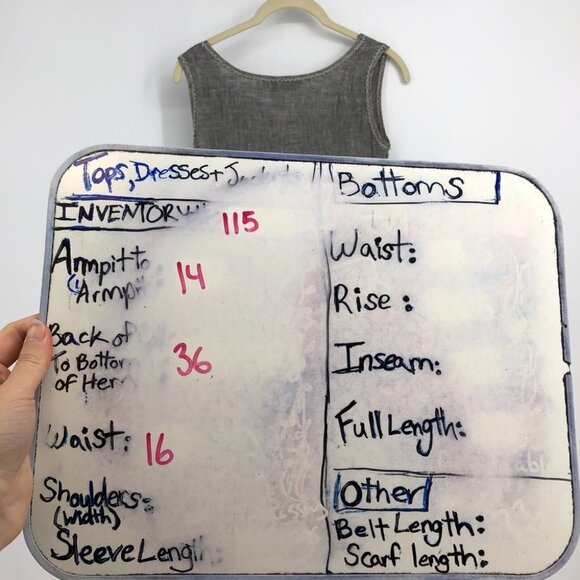 Tops, Dresses+
INVENTORY 115
Armpit to
Armpit 14
Back of
To Bottom 36
of Hem
Waist: 16
Shoulders:
(width)
Sleeve Length
Bottoms
Waist:
Rise:
Inseam:
Full Length:
Other
Belt Length:
Scarf length: